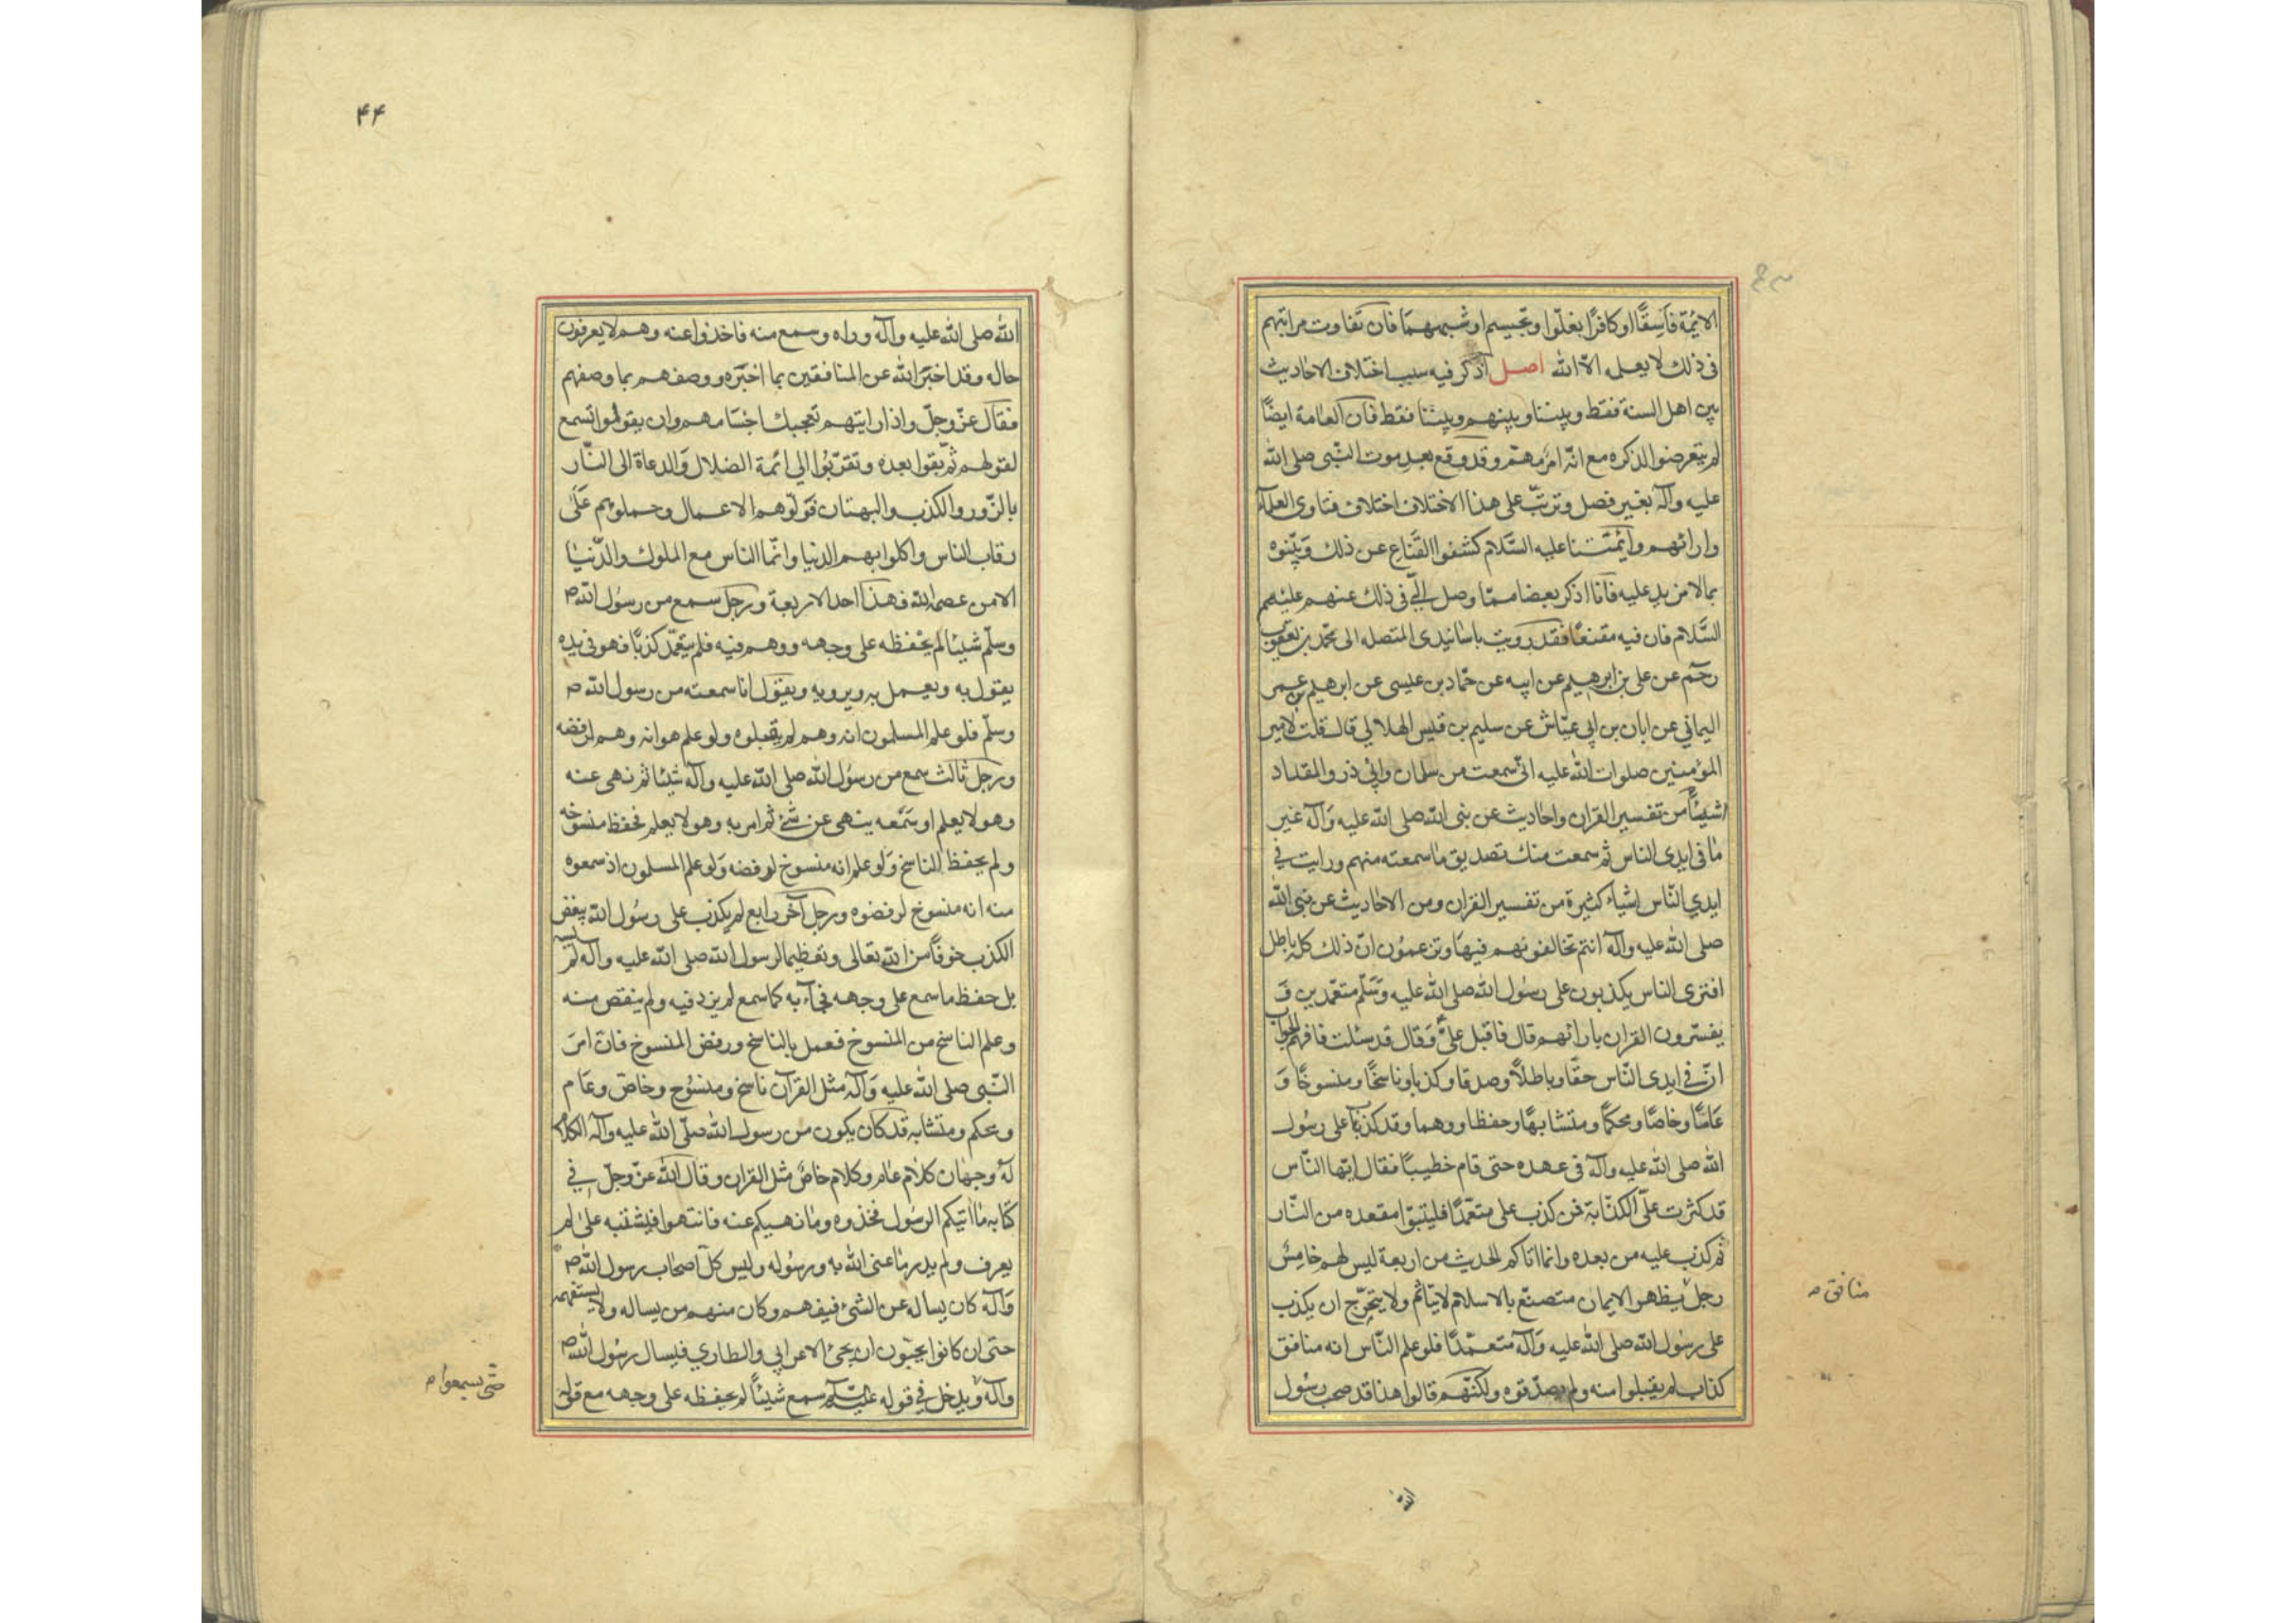 الائمة فاسقًا او كافرًا بغلوّا وتجسيم او شبههما فان تفاوت مراتبهم
فى ذلك لا يعلمه الا الله اصل اذكر فيه سبب اختلاف الاحاديث
بين اهل السنة فقط وبيننا وبينهم وبيننا فقط فان العامة ايضًا
لم يتعرضوا لذكره مع انّه امر مهمّ وقد وقع بعد موت النّبى صلى الله
عليه وآله بغير فصل وترتّب على هذا الاختلاف اختلاف فتاوى العلمآء
وارائهم وائمّتنا عليه السّلام كشفوا القناع عن ذلك وبيّنوه
بما لا مزيد عليه فانا اذكر بعضا ممّا وصل الىّ فى ذلك عنهم عليهم
السّلام فان فيه مقنعًا فقد رويت باسانيدى المتصله الى محمّد بن يعقوب
رحمه عن على بن ابرهيم عن ابيه عن حمّاد بن عيسى عن ابرهيم بن عمر
اليمانى عن ابان بن ابى عيّاش عن سليم بن قيس الهلالى قال قلت لامير
المؤمنين صلوات الله عليه انّى سمعت من سلمان وابى ذر والمقداد
شيئًا من تفسير القران واحاديث عن نبى الله صلى الله عليه وآله غير
ما فى ايدى الناس ثم سمعت منك تصديق ما سمعته منهم ورايت فى
ايدى النّاس اشياء كثيرة من تفسير القران ومن الاحاديث عن نبى الله
صلى الله عليه وآله انتم تخالفونهم فيها وتزعمون انّ ذلك كله باطل
افترى الناس يكذبون على رسول الله صلى الله عليه وسلّم متعمّدين و
يفسّرون القران بارائهم قال فاقبل علىّ وقال قد سئلت فافهم الجواب
انّ فى ايدى النّاس حقّا وباطلًا وصدقا وكذبا وناسخًا ومنسوخًا و
عامّا وخاصّا ومحكمًا ومتشابهًا وحفظا ووهما وقد كذب على رسول
الله صلى الله عليه وآله فى عهده حتى قام خطيبًا فقال ايّها النّاس
قد كثرت علىّ الكذّابة فمن كذب على متعمّدًا فليتبوّا مقعده من النّار
ثم كذب عليه من بعده وانما اتاكم الحديث من اربعة ليس لهم خامس
رجل يظهر الايمان متصنّع بالاسلام لا يتاثم ولا يتحرّج ان يكذب
على رسول الله صلى الله عليه وآله متعمّدًا فلو علم النّاس انه منافق
كذاب لم يقبلوا منه ولم يصدّقوه ولكنّهم قالوا هذا قد صحب رسول
منافق
الله
۴۴
الله صلى الله عليه وآله وراه وسمع منه فاخذوا عنه وهم لا يعرفون
حاله وقد اخبر الله عن المنافقين بما اخبره ووصفهم بما وصفهم
فقال عزّ وجلّ واذا رايتهم تعجبك اجسامهم وان يقولوا تسمع
لقولهم ثمّ بقوا بعده وتقرّبوا الى ائمة الضلال والدعاة الى النّار
بالزّور والكذب والبهتان فولّوهم الاعمال وحملوهم على
رقاب الناس واكلوا بهم الدنيا وانّما الناس مع الملوك والدّنيا
الا من عصم الله فهذا احد الاربعة ورجل سمع من رسول الله ص
وسلّم شيئا لم يحفظه على وجهه ووهم فيه فلم يتعمّد كذبًا فهو فى يده
يقول به ويعمل به ويرويه ويقول انا سمعته من رسول الله ص
وسلّم فلو علم المسلمون انه وهم لم يقبلوه ولو علم هو انه وهم لرفضه
ورجل ثالث سمع من رسول الله صلى الله عليه وآله شيئا ثم نهى عنه
وهو لا يعلم او سمعه ينهى عن شئ ثم امر به وهو لا يعلم فحفظ منسوخه
ولم يحفظ الناسخ ولو علم انه منسوخ لرفضه ولو علم المسلمون اذ سمعوه
منه انه منسوخ لرفضوه ورجل آخر رابع لم يكذب على رسول الله يبغض
الكذب خوفًا من الله تعالى وتعظيما لرسول الله صلى الله عليه وآله لم ينسه
بل حفظ ما سمع على وجهه فجآء به كما سمع لم يزد فيه ولم ينقص منه
وعلم الناسخ من المنسوخ فعمل بالناسخ ورفض المنسوخ فان امر
النّبى صلى الله عليه وآله مثل القرآن ناسخ ومنسوخ وخاصّ وعام
ومحكم ومتشابه قد كان يكون من رسول الله صلّى الله عليه وآله الكلام
له وجهان كلام عام وكلام خاص مثل القران وقال الله عزّ وجلّ فى
كتابه ما اتيكم الرسول فخذوه وما نهيكم عنه فانتهوا فيشتبه على من لم
يعرف ولم يدر ما عنى الله به ورسوله وليس كلّ اصحاب رسول الله ص
وآله كان يساله عن الشئ فيفهم وكان منهم من يساله ولا يستفهمه
حتى ان كانوا يحبّون ان يجئ الاعرابى والطارى فيسال رسول الله ص
وآله ويدخل فى قوله عليه السّلم سمع شيئاً لم يحفظه على وجهه مع قلّة
حتّى يسمعوا